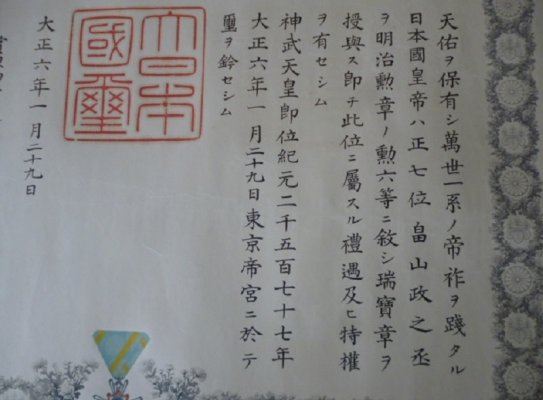 天佑ヲ保有シ萬世一系ノ帝祚ヲ踐タル
日本國皇帝ハ正七位畠山政之丞
ヲ明治勲章ノ勲六等ニ敘シ瑞寶章ヲ
授與ス即チ此位ニ屬スル禮遇及ヒ特權
ヲ有セシム
神武天皇即位紀元二千五百七十七年
大正六年一月二十九日東京帝宮ニ於テ
璽ヲ鈐セシム
大日本國璽
大正六年一月二十九日